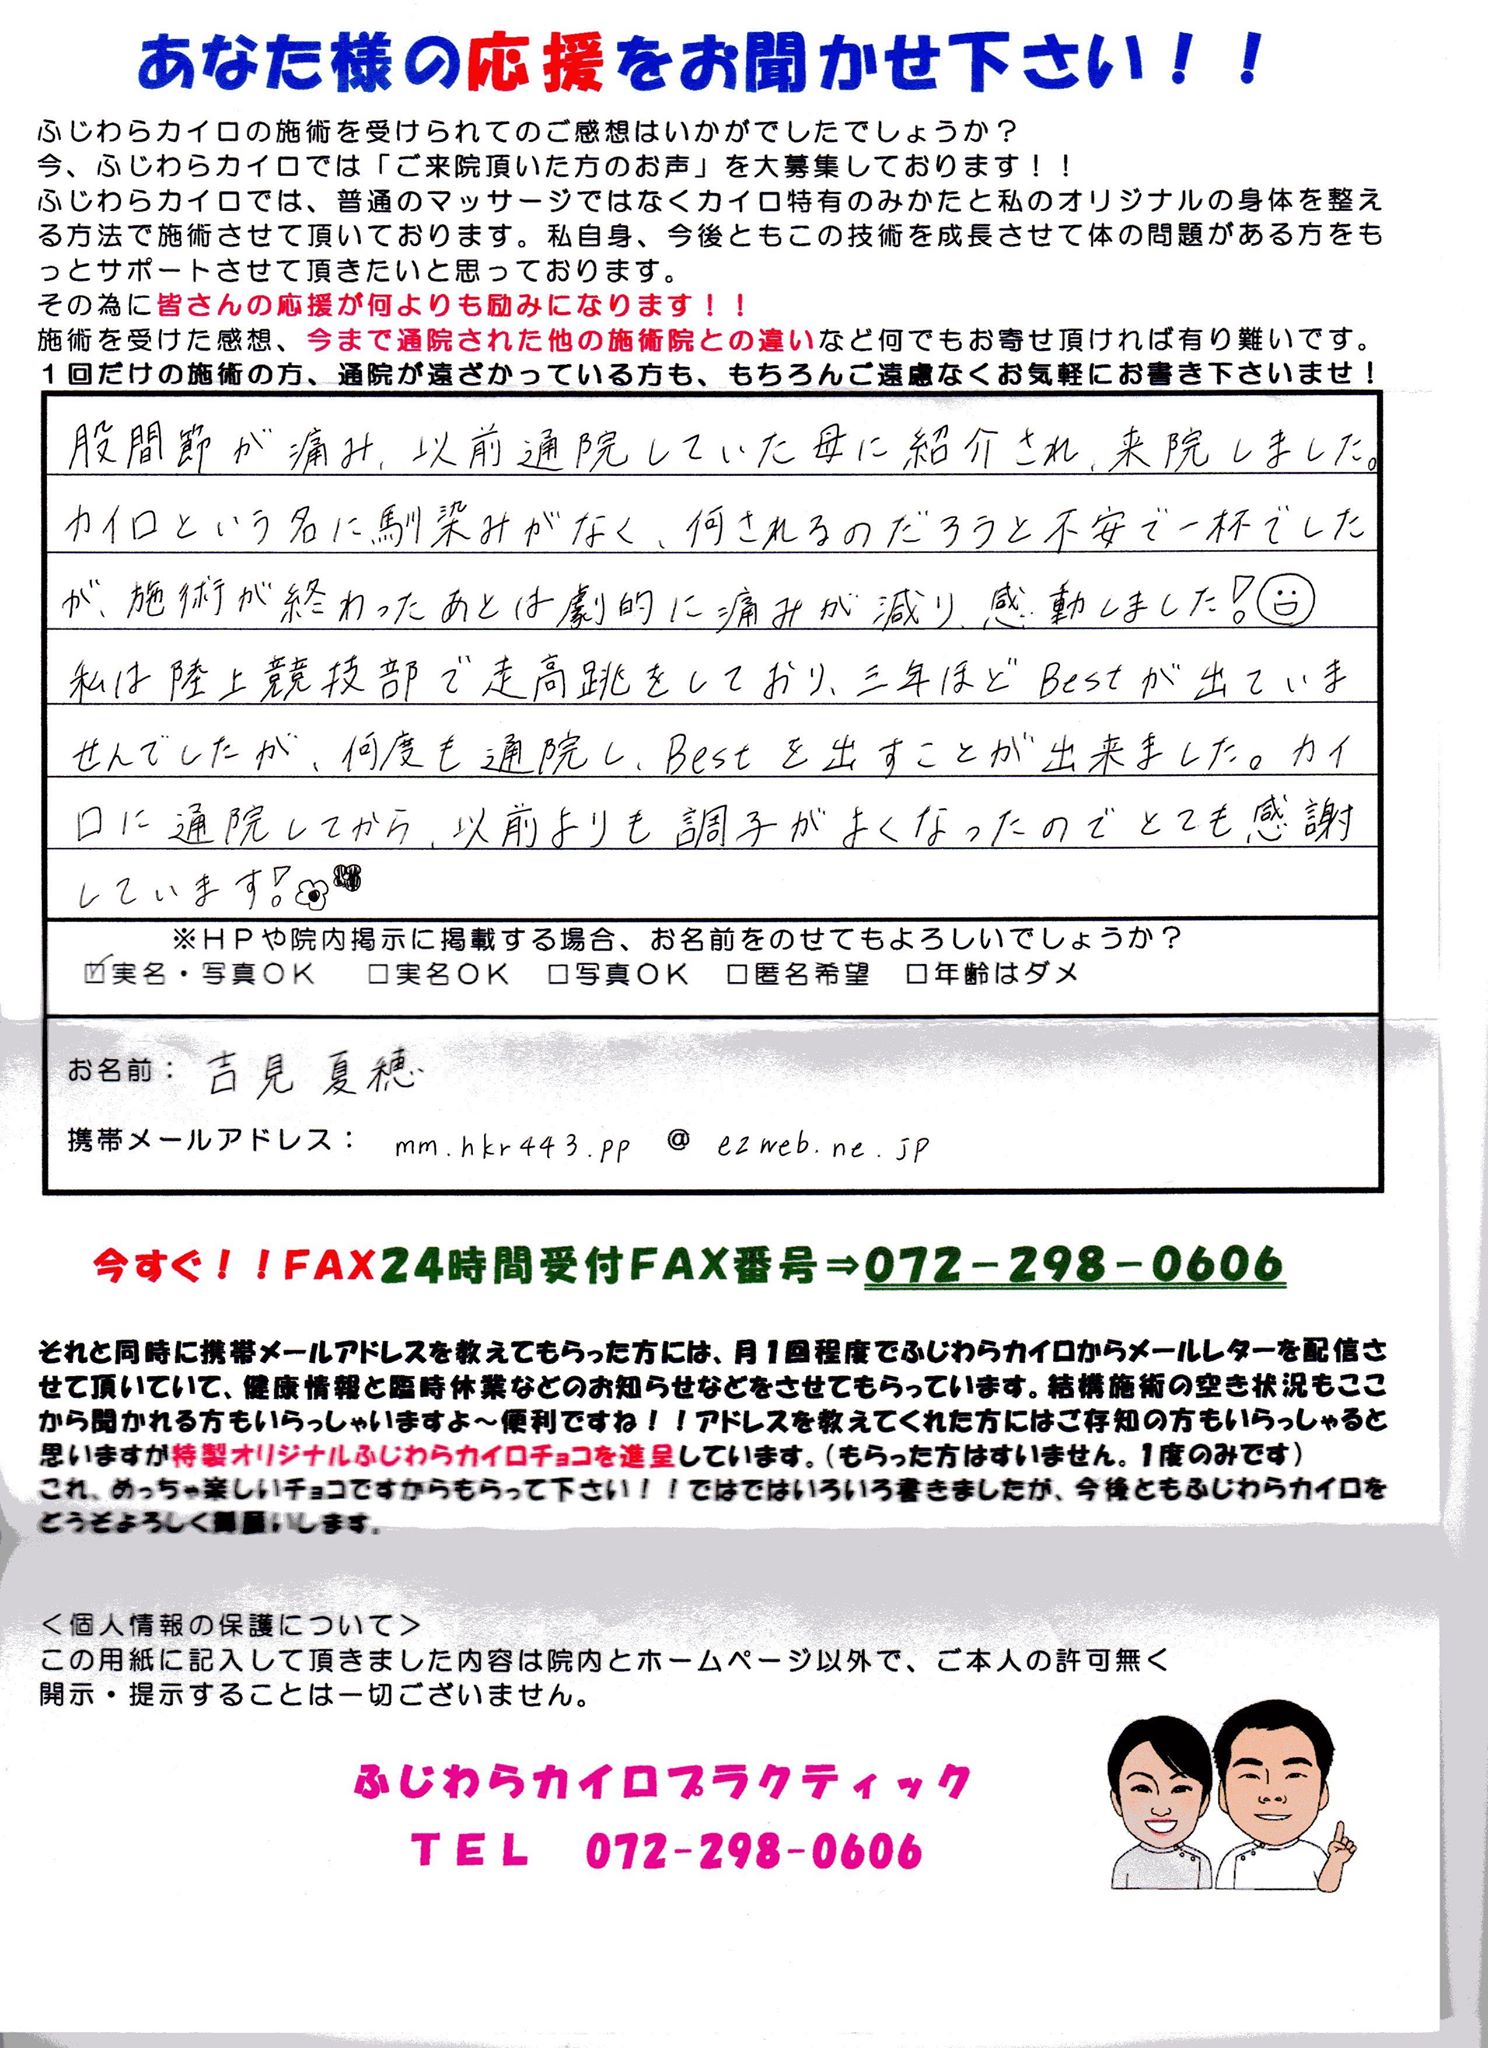 あなた様の応援をお聞かせ下さい！！
ふじわらカイロの施術を受けられてのご感想はいかがでしたでしょうか？
今、ふじわらカイロでは「ご来院頂いた方のお声」を大募集しております！！
ふじわらカイロでは、普通のマッサージではなくカイロ特有のみかたと私のオリジナルの身体を整え
る方法で施術させて頂いております。私自身、今後ともこの技術を成長させて体の問題がある方をも
っとサポートさせて頂きたいと思っております。
その為に皆さんの応援が何よりも励みになります！！
施術を受けた感想、今まで通院された他の施術院との違いなど何でもお寄せ頂ければ有り難いです。
１回だけの施術の方、通院が遠ざかっている方も、もちろんご遠慮なくお気軽にお書き下さいませ！
股間節が痛み、以前通院していた母に紹介され、来院しました。
カイロという名に馴染みがなく、何されるのだろうと不安で一杯でした
が、施術が終わったあとは劇的に痛みが減り、感動しました！
私は陸上競技部で走高跳をしており、三年ほどBestが出ていま
せんでしたが、何度も通院し、Bestを出すことが出来ました。カイ
ロに通院してから、以前よりも調子がよくなったのでとても感謝
しています！
※ＨＰや院内掲示に掲載する場合、お名前をのせてもよろしいでしょうか？
☑実名・写真ＯＫ　□実名ＯＫ　□写真ＯＫ　□匿名希望　□年齢はダメ
お名前： 吉見 夏穂
携帯メールアドレス： mm.hkr443.pp @ ezweb.ne.jp
今すぐ！！FAX24時間受付FAX番号⇒072－298－0606
それと同時に携帯メールアドレスを教えてもらった方には、月１回程度でふじわらカイロからメールレターを配信さ
せて頂いていて、健康情報と臨時休業などのお知らせなどをさせてもらっています。結構施術の空き状況もここ
から聞かれる方もいらっしゃいますよ～便利ですね！！アドレスを教えてくれた方にはご存知の方もいらっしゃると
思いますが特製オリジナルふじわらカイロチョコを進呈しています。（もらった方はすいません。１度のみです）
これ、めっちゃ楽しいチョコですからもらって下さい！！ではではいろいろ書きましたが、今後ともふじわらカイロを
どうぞよろしくお願いします。
＜個人情報の保護について＞
この用紙に記入して頂きました内容は院内とホームページ以外で、ご本人の許可無く
開示・提示することは一切ございません。
ふじわらカイロプラクティック
ＴＥＬ　072-298-0606